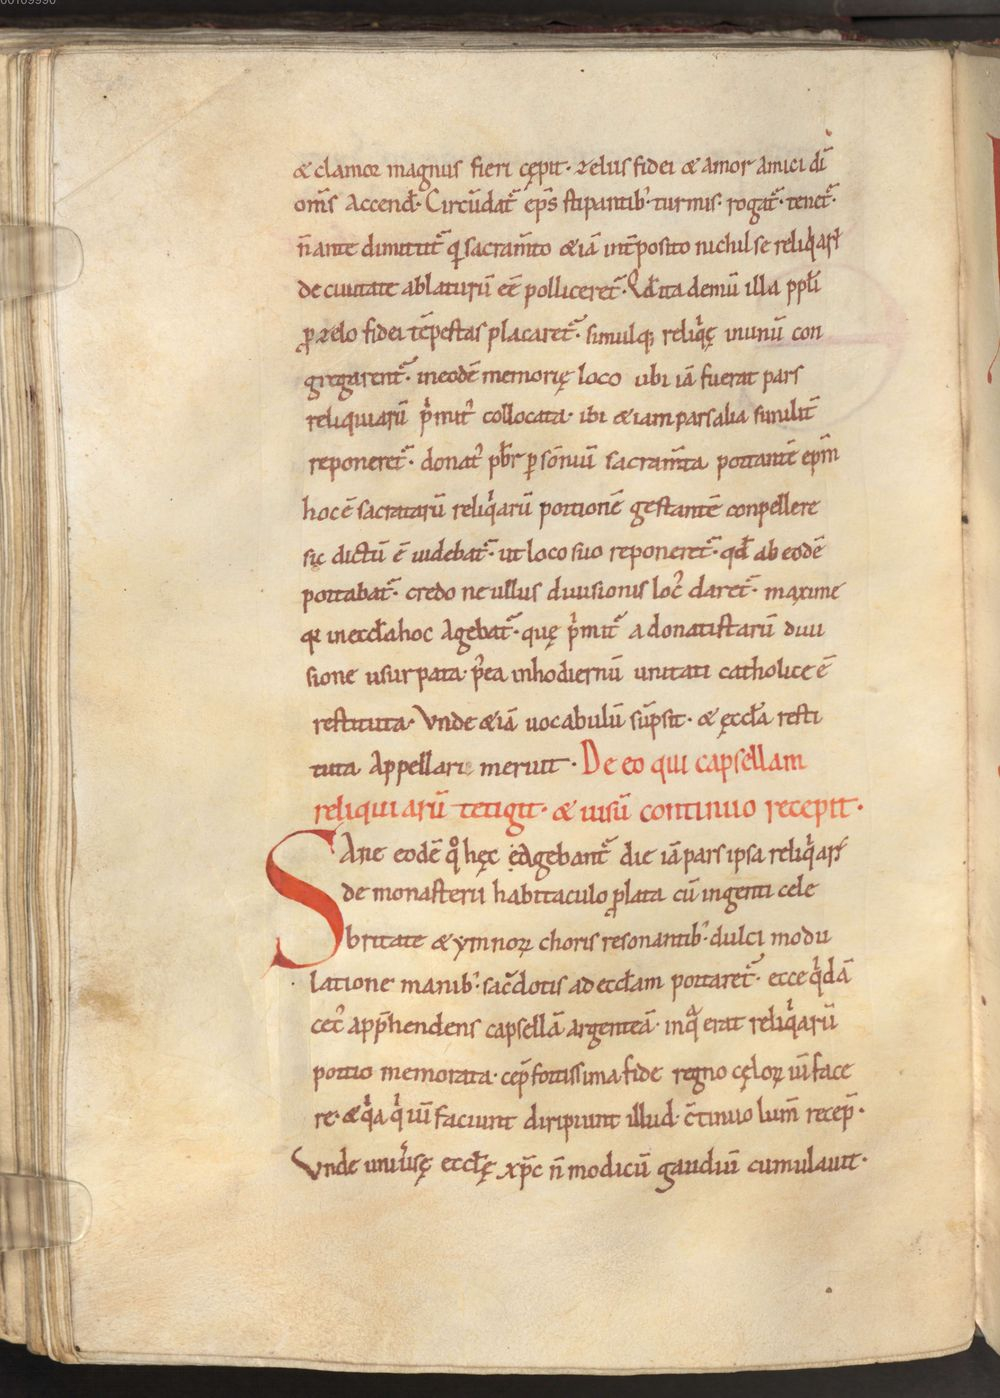 00109990
& clamor magnus fieri cępit· zelus fidei & amor amici dī
om̄s Accend̄· Circūdat᷑ ep̄s stipantib᷒ turmis· rogat᷑· tenet᷑·
n̄ ante dimittit᷑ q̄ sacram̄to & iā int̄posito nichil se reliq̓arꝝ
de ciuitate ablaturū eē polliceret᷑· Qd̄ ita demū illa ppl̄i
ꝓ zelo fidei tēpestas placaret᷑· simulq; reliq̓ę inunū con
gregarent᷑· in eodē memorię loco ubi iā fuerat pars
reliquiarū p̓mit᷒ collocata· ibi & iam pars alia similit̄
reponeret᷑· donat᷒ pb̄r p somniū sacram̄ta portantē ep̄m
hoc ē sacratarū reliq̓arū portionē gestantē conpellere
sic dictū ē uidebat᷑· ut loco suo reponeret᷑· qd̄ ab eodē
portabat᷑· credo ne ullus diuisionis loc᷒ daret᷑· maxime
qꝛ in eccl̄a hoc Agebat᷑· quę p̓mit᷒ a donatistarū diui
sione usurpata· p̄ea in hodiernū unitati catholice ē
restituta· Vnde & iā uocabulū sūpsit· & ęccl̄a resti
tuta Appellari meruit· De eo qui capsellam
reliquiarū tetigit· & uisū continuo recepit·
SAne eodē qͦ hęc Agebant᷑ die iā pars ipsa reliq̓arꝝ
de monasterii habitaculo ꝓlata cū ingenti cele
britate & ymnoꝝ choris resonantib᷒· dulci modu
latione manib᷒· sac̄dotis ad eccl̄am portaret᷑· ecce q̓dā
cec᷒ app̄hendens capsellā argenteā· in qͣ erat reliq̓arū
portio memorata· cep̄ fortissima fide regno cęloꝝ uī face
re· & q̓a q̓ uī faciunt diripiunt illud· c̄tinuo lum̄ recep̄·
Vnde uniu̓sę eccl̄ę xp̄c n̄ modicū gaudiū cumulauit·